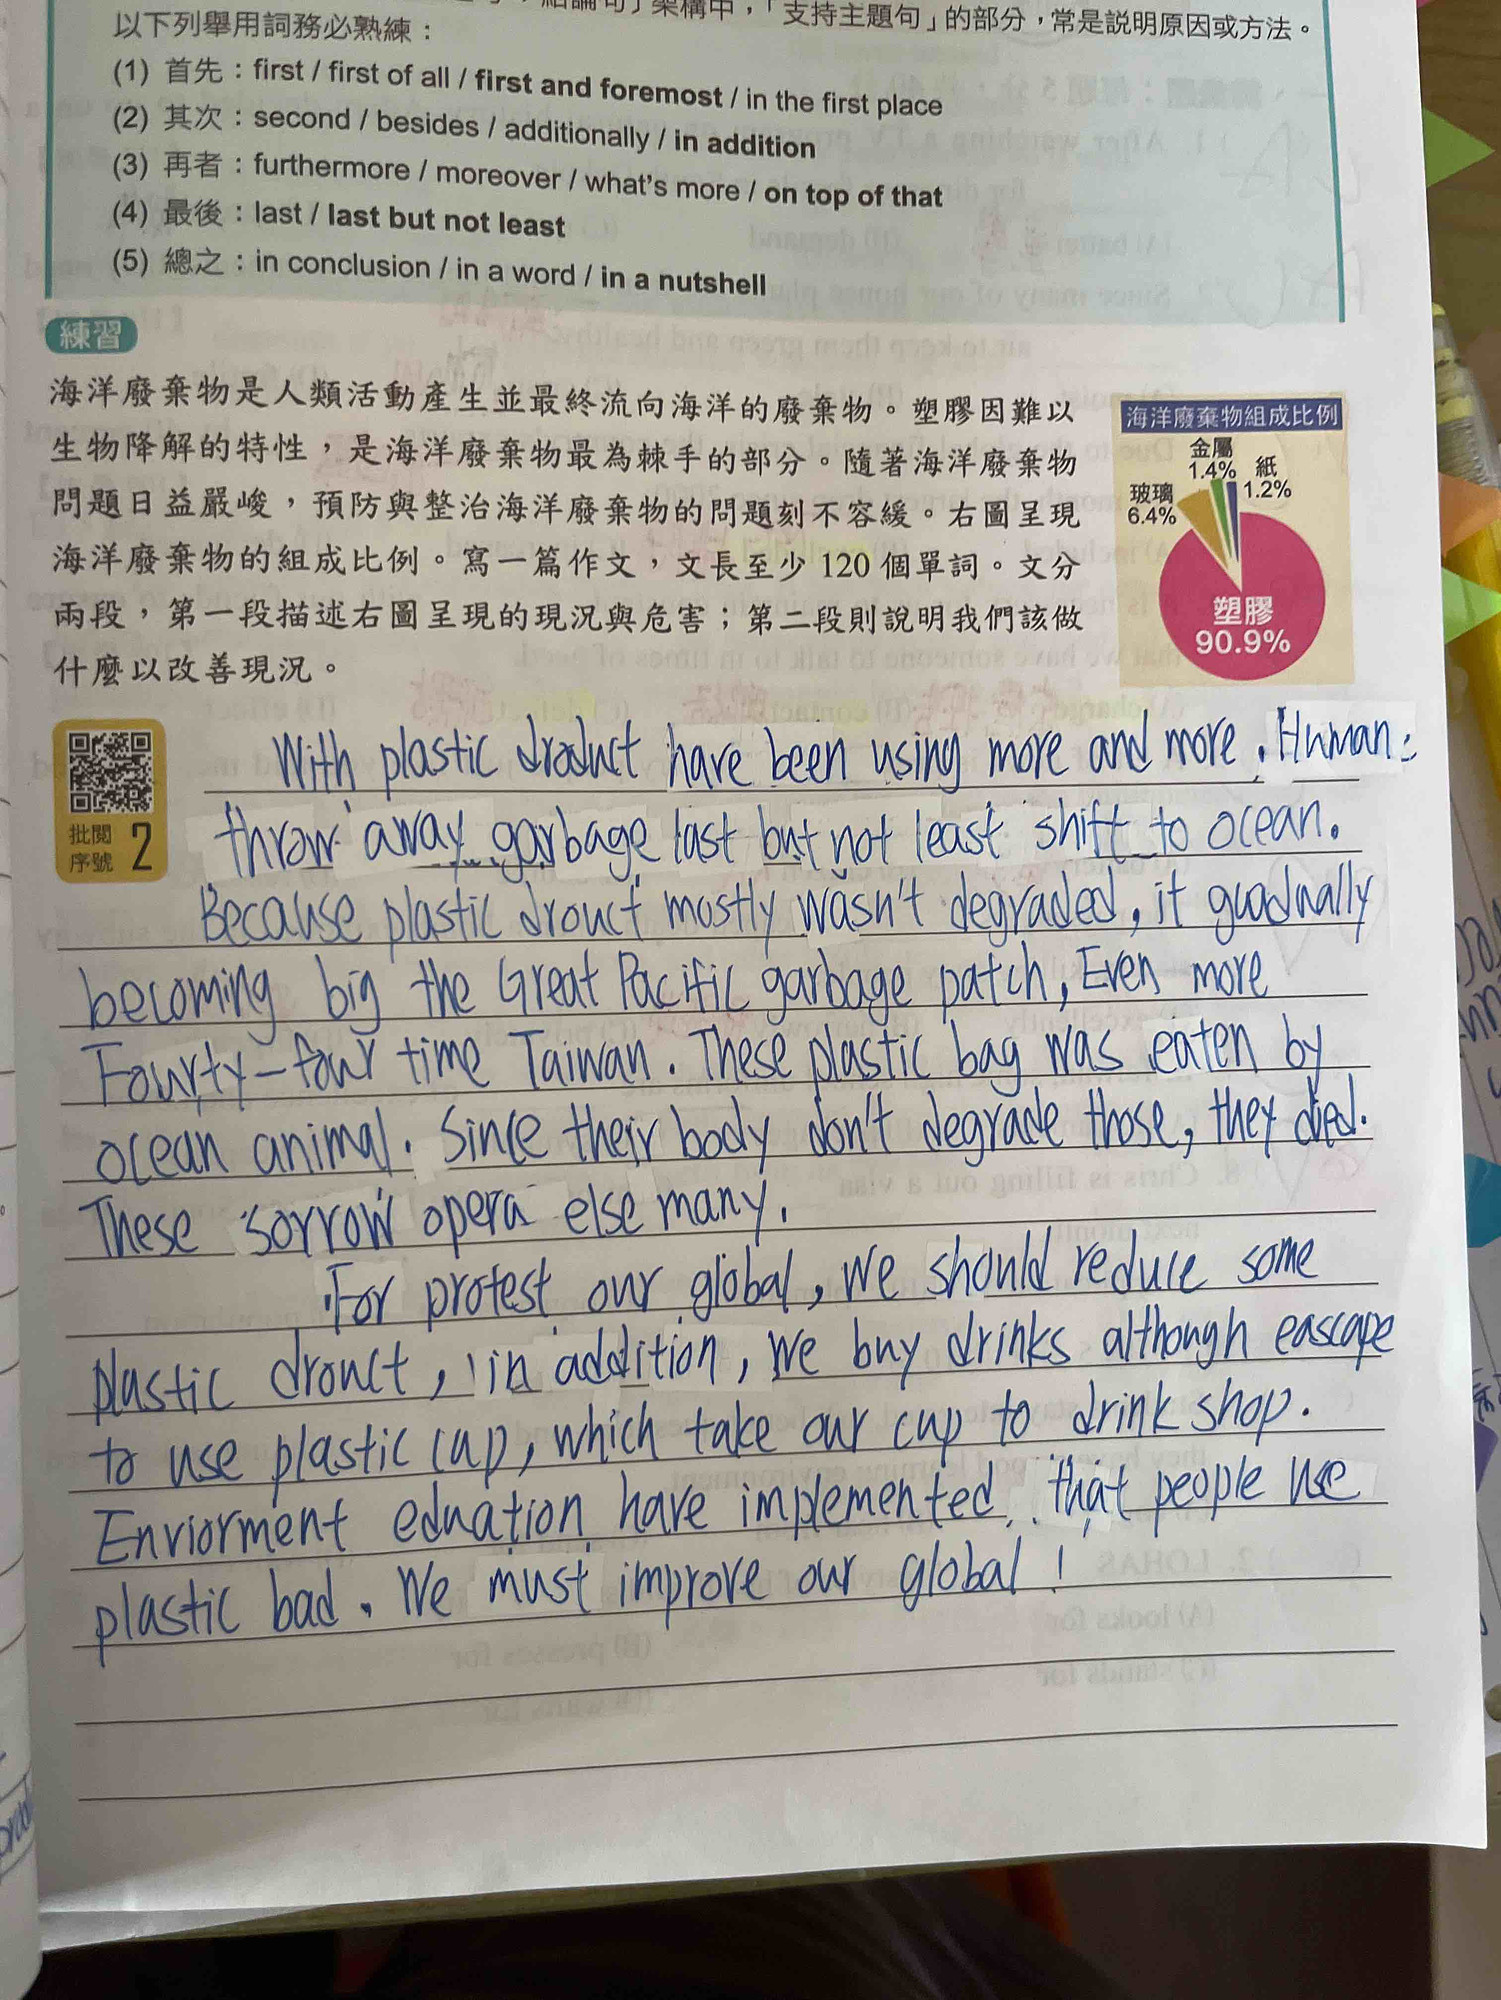 架構中,「支持主題句」的部分,常是說明原因或方法。
以下列舉用詞務必熟練:
(1) 首先:first / first of all / first and foremost / in the first place
(2) 其次:second / besides / additionally / in addition
(3) 再者:furthermore / moreover / what's more / on top of that
(4) 最後:last / last but not least
(5) 總之:in conclusion / in a word / in a nutshell
練習
海洋廢棄物是人類活動產生並最終流向海洋的廢棄物。塑膠因難以
生物降解的特性,是海洋廢棄物最為棘手的部分。隨著海洋廢棄物
問題日益嚴峻,預防與整治海洋廢棄物的問題刻不容緩。右圖呈現
海洋廢棄物的組成比例。寫一篇作文,文長至少 120 個單詞。文分
兩段,第一段描述右圖呈現的現況與危害;第二段則說明我們該做
什麼以改善現況。
海洋廢棄物組成比例
金屬
1.4%
紙
1.2%
玻璃
6.4%
塑膠
90.9%
批閱
序號 2
With plastic have been using more and more. Human
throw away garbage last but not least shift to ocean.
Because plastic drouct mostly wasn't degraded, it guadnally
becoming big the Great Pacific garbage patch, Even more
Fourty-four time Taiwan. These plastic bag was eaten by
ocean animal. Since their body don't degrade those, they died.
These sorrow opera else many.
For protest our global, we should reduce some
plastic drouct, in addition, we buy drinks although eascape
to use plastic cup, which take our cup to drink shop.
Enviorment eduation have implemented, that people use
plastic bad. We must improve our global!